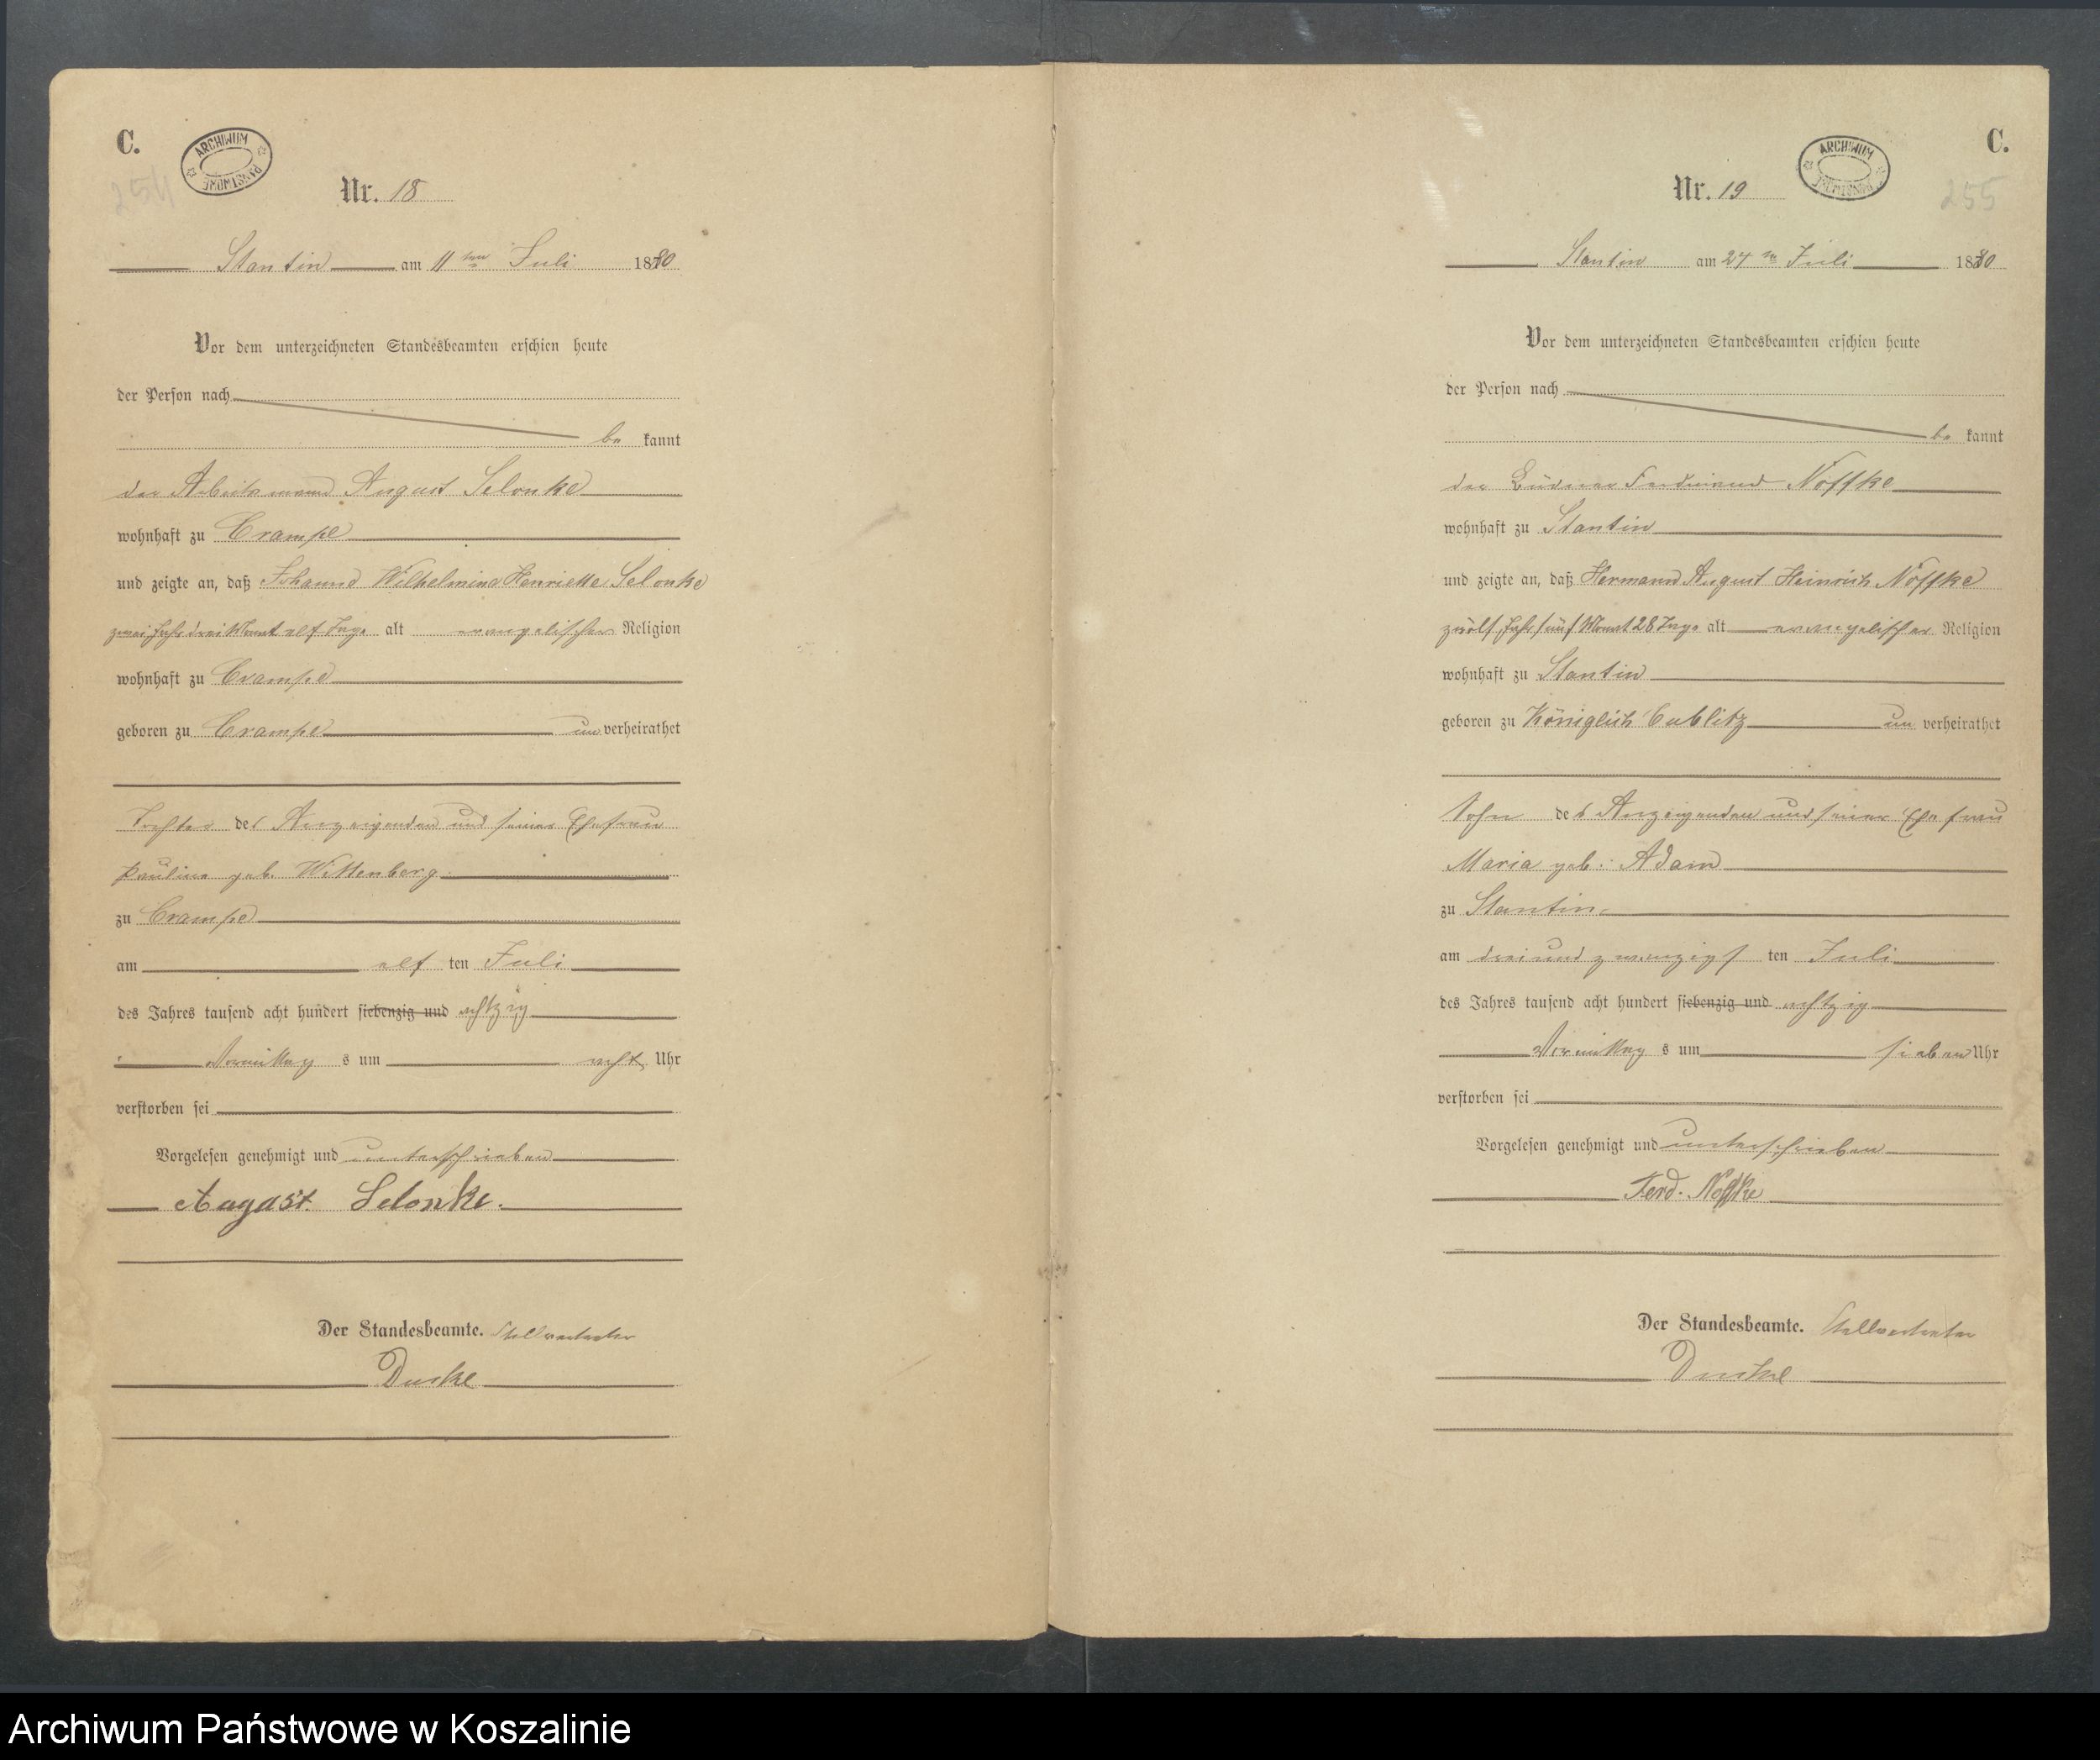 C.
ARCHIWUM PAŃSTWOWE
254
Nr. 18
Stantin am 11ten Juli 1880
Vor dem unterzeichneten Standesbeamten erschien heute
der Person nach
be kannt
der Arbeitsmann August Selonke
wohnhaft zu Crampe
und zeigte an, daß Johanne Wilhelmine Henriette Selonke
zwei Jahr drei Monat elf Tage alt evangelischer Religion
wohnhaft zu Crampe
geboren zu Crampe un verheirathet
Tochter des Anzeigenden und seiner Ehefrau
Pauline geb. Wittenberg
zu Crampe
am elf ten Juli
des Jahres tausend acht hundert siebenzig und achtzig
Vormittag s um acht Uhr
verstorben sei
Vorgelesen genehmigt und unterschrieben
August Selonke.
Der Standesbeamte. Stellvertreter
C.
ARCHIWUM PAŃSTWOWE
255
Nr. 19
Stantin am 24ten Juli 1880
Vor dem unterzeichneten Standesbeamten erschien heute
der Person nach
be kannt
der Büdner Ferdinand Nöffke
wohnhaft zu Stantin
und zeigte an, daß Hermann August Heinrich Nöffke
zwölf Jahr fünf Monat 28 Tage alt evangelischer Religion
wohnhaft zu Stantin
geboren zu Königlich Cublitz un verheirathet
Sohn des Anzeigenden und seiner Ehefrau
Maria geb. Adam
zu Stantin
am dreiundzwanzigs ten Juli
des Jahres tausend acht hundert siebenzig und achtzig
Vormittag s um sieben Uhr
verstorben sei
Vorgelesen genehmigt und unterschrieben
Ferd. Nöffke
Der Standesbeamte. Stellvertreter
Archiwum Państwowe w Koszalinie